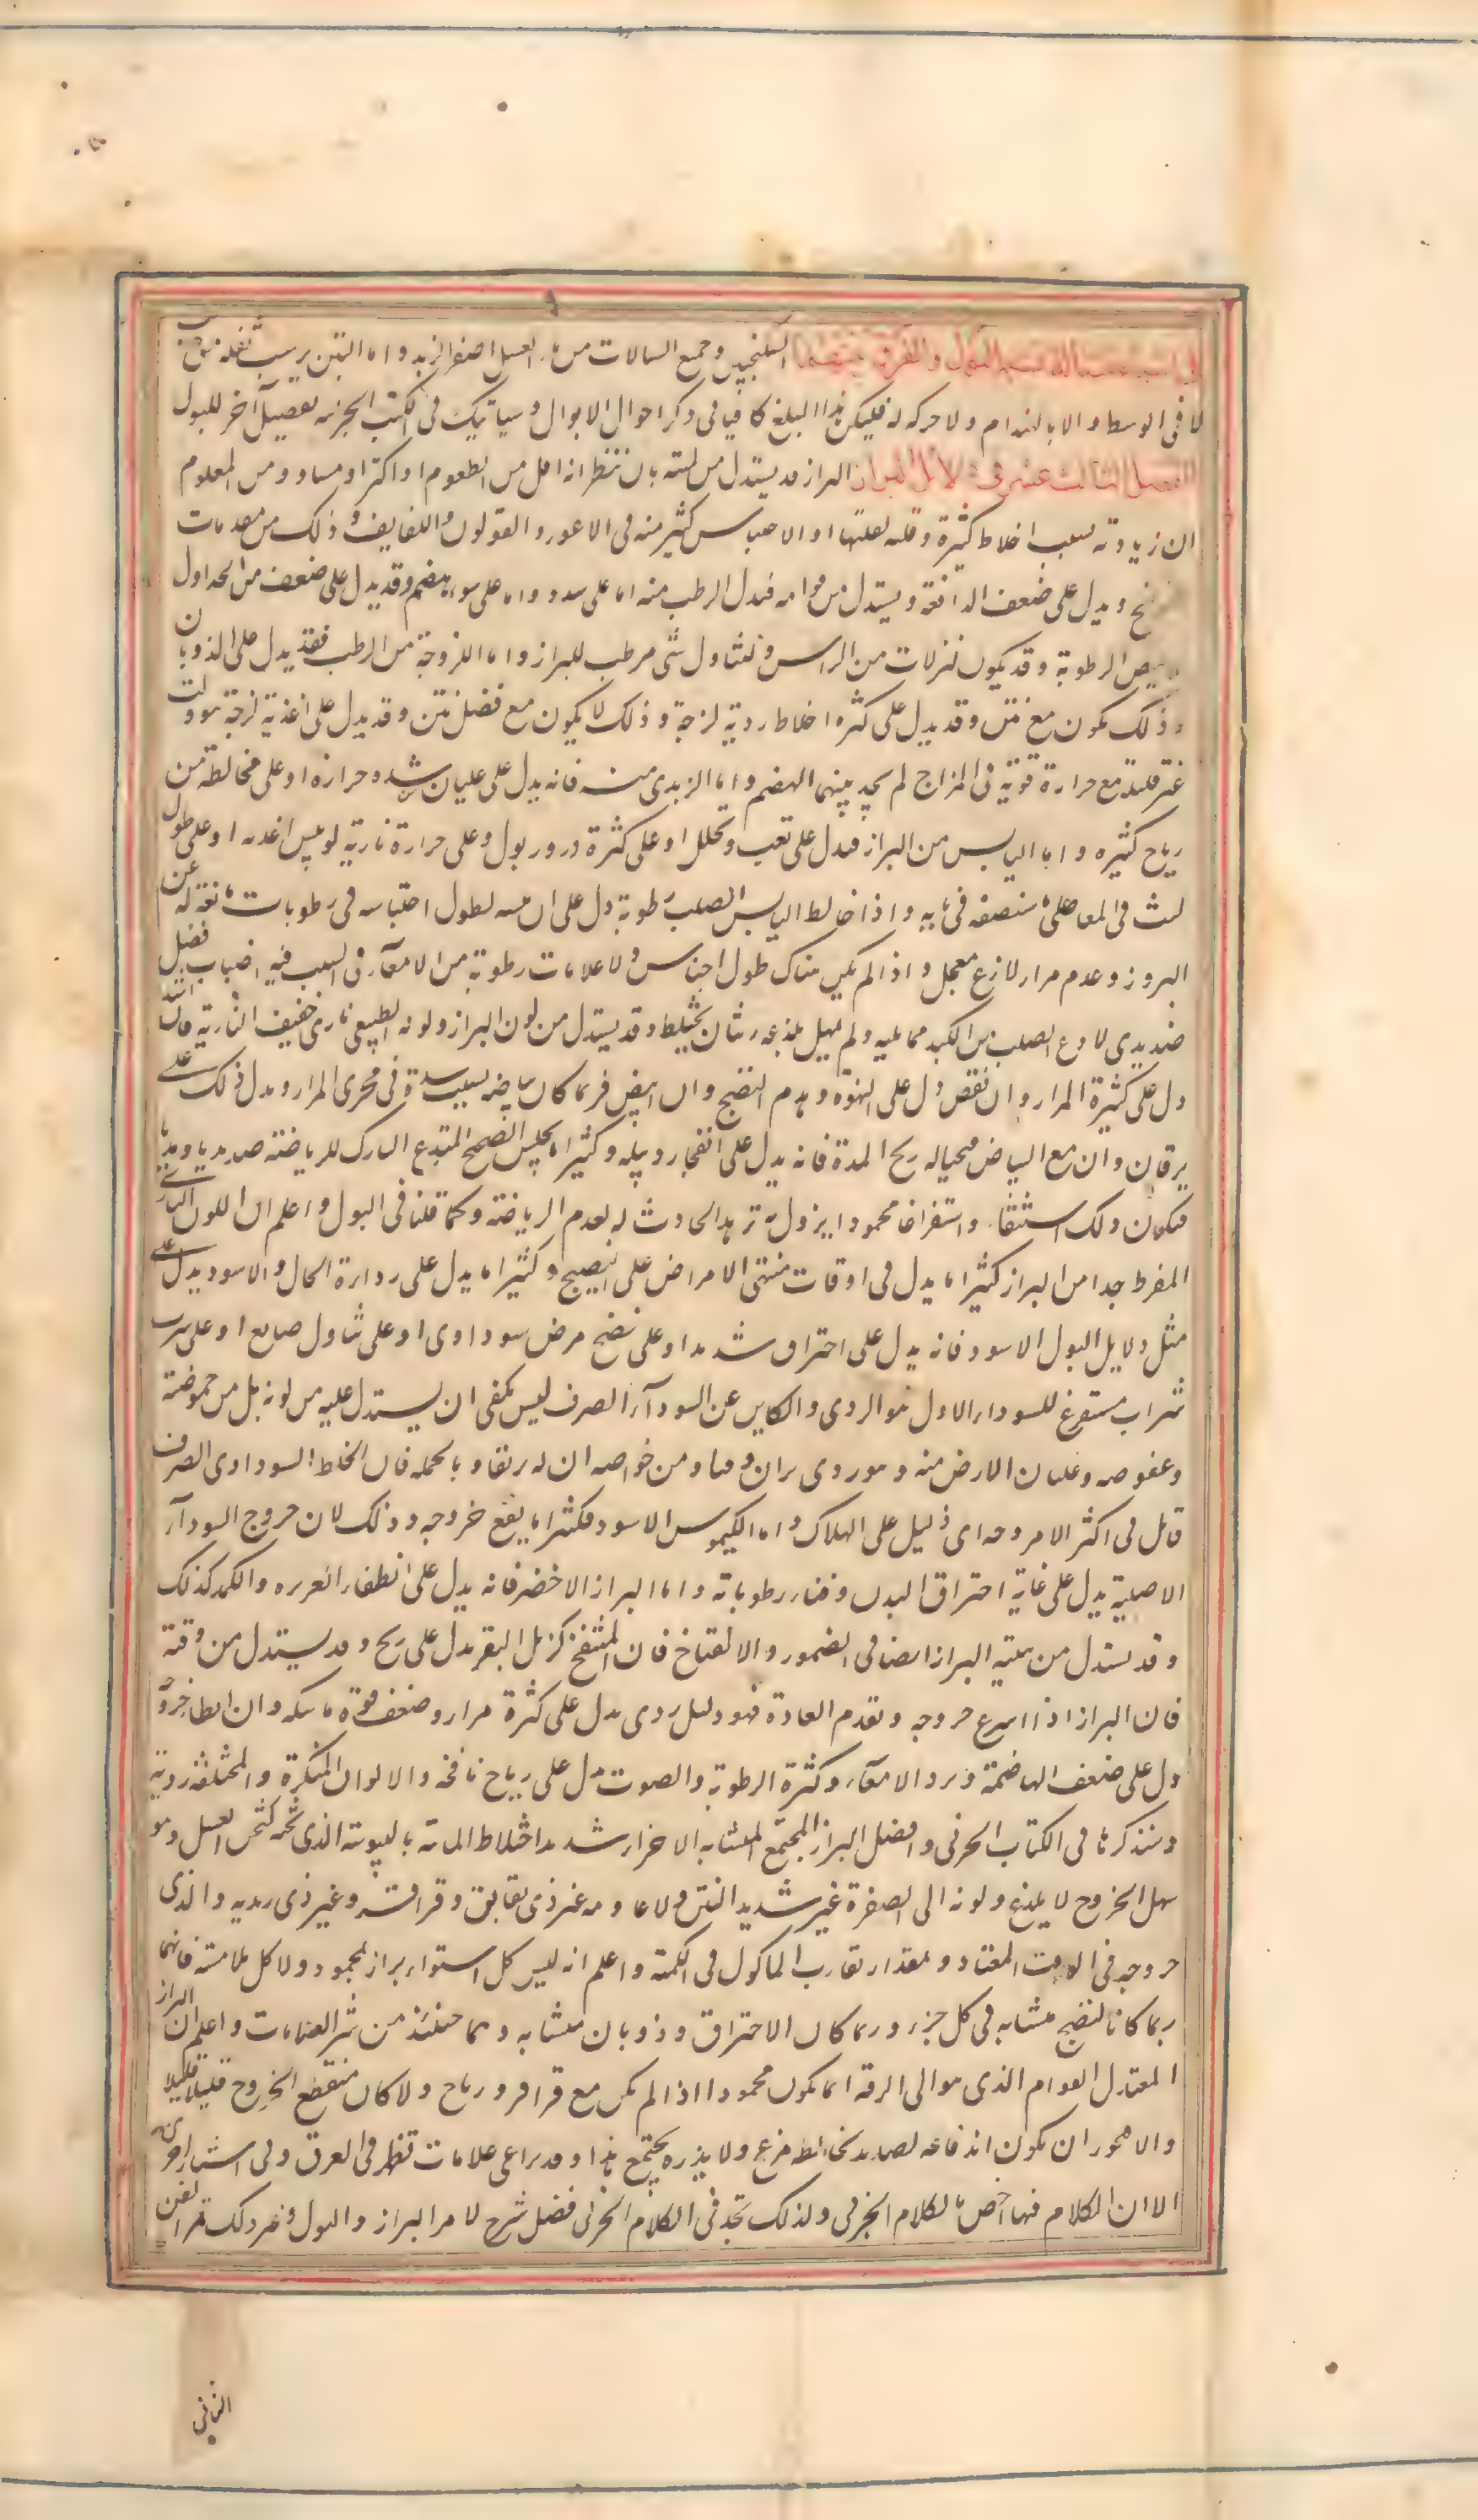 في اشياء سيالة تشبه البول والفرق بينهما السكنجبين وجميع السيالات من ماء العسل اصفر الزبد واما التبن يرسب ثفله من
لا في الوسط ولا بالهندام ولا حركه له فليكن هذا المبلغ كافيا في ذكر احوال الابوال وسياتيك في الكتب الجزئيه تفصيل آخر للبول
الفصل الثالث عشر في دلائل البراز البراز قد يستدل من كميته بان ننظر انه اقل من المطعوم او اكثر او مساو ومن المعلوم
ان زيادته بسبب اخلاط كثيرة وقلته لقلتها او لاحتباس كثير منه في الاعور والقولون واللفايف وذلك من مقدمات
ويدل على ضعف الدافعة ويستدل من قوامه فيدل الرطب منه اما على سدد واما على سوء هضم وقد يدل على ضعف من الجداول
الرطوبة وقد يكون لنزلات من الراس ولتناول شي مرطب للبراز واما اللزوجة من الرطب فقد يدل على الذوبان
وذلك يكون مع نتن وقد يدل على كثره اخلاط ردية لزجة وذلك لا يكون مع فضل نتن وقد يدل على اغذية لزجة تنوولت
غير قليلة مع حرارة قوية في المزاج لم يجد بينهما الهضم واما الزبدي منه فانه يدل على غليان شده حرارة او على مخالطة من
رياح كثيره واما اليابس من البراز فيدل على تعب وتحلل او على كثرة درور بول وعلى حرارة نارية او يبس اغذيه او على طول
لبث في المعا على ما سنصفه في بابه واذا خالط اليابس الصلب رطوبة دل على ان يبسه لطول احتباسه في رطوبات مانعة له عن
البروز وعدم مرار لاذع معجل واذا لم يكن هناك طول احتباس ولا علامات رطوبة من الامعآء فالسبب فيه انصباب فضل
صديدي لاذع انصب من الكبد مما يليه ولم يمهل بلذعه ريثما يختلط وقد يستدل من لون البراز ولونه الطبيعي ناري خفيف النارية فان اشتد
دل على كثرة المرار وان نقص دل على النهوة وعدم النضج وان ابيض فربما كان بياضه بسبب سدة في مجرى المرار ويدل ذلك على
يرقان وان مع البياض قيحيا له ريح المدة فانه يدل على انفجار دبيلة وكثيرا ما يجلس الصحيح المتدع التارك للرياضة صديديا ومديا
فيكون ذلك استنقاء واستفراغا محمودا يزول به ترهله الحادث له لعدم الرياضة وكما قلنا في البول واعلم ان اللون الناري
المفرط جدا من البراز كثيرا ما يدل في اوقات منتهى الامراض على النضج وكثيرا ما يدل على رداءة الحال والاسود يدل على
مثل دلايل البول الاسود فانه يدل على احتراق شديد او على نضج مرض سوداوي او على تناول صابغ او على شرب
شراب مستفرغ للسوداء والاول هو الردي والكاين عن السودآء الصرف ليس يكفي ان يستدل عليه من لونه بل من حموضته
وعفوصته وغليان الارض منه وهو ردي براز او قيا ومن خواصه ان له بريقا وبالجملة فان الخلط السوداوي الصرف
قاتل في اكثر الامر خروجه اي دليل على الهلاك واما الكيموس الاسود فكثيرا ما ينفع خروجه وذلك لان خروج السودآء
الاصلية يدل على غاية احتراق البدن وفناء رطوباته واما البراز الاخضر فانه يدل على انطفاء الغريزه والكمد كذلك
وقد يستدل من هيئة البراز ايضا في الضمور والانتفاخ فان المنتفخ كزبل البقر يدل على ريح وقد يستدل من وقته
فان البراز اذا اسرع خروجه وتقدم العادة فهو دليل ردي يدل على كثرة مرار وضعف قوة ماسكه وان ابطا خروجه
دل على ضعف الهاضمة وبرد الامعآء وكثرة الرطوبة والصوت يدل على رياح نافخه والالوان المنكرة والمختلفة ردية
وسنذكرها في الكتاب الجزئي وافضل البراز المجتمع المتشابه الاجزاء شديد اختلاط المائية باليبوسة الذي ثخنه كثخن العسل وهو
سهل الخروج لا يلذع ولونه الى الصفرة غير شديد النتن ولا غير ذي بقابق وقراقر وغير ذي زبديه والذي
خروجه في الوقت المعتاد وبمقدار تقارب الماكول في الكمية واعلم انه ليس كل استواء براز بمحمود ولا كل ملاسة فانهما
ربما كانا لنضج متشابه في كل جزء وربما كان الاحتراق وذوبان متشابه وهما حينئذ من شر العلامات واعلم ان البراز
المعتدل القوام الذي هو الى الرقة انما يكون محمودا اذا لم يكن مع قراقر ورياح ولا كان منقطع الخروج قليلا قليلا
والا فيجوز ان يكون اندفاعه لصديد يخالطه مزعج ولا يذره يجتمع هذا وقد يراعى علامات تظهر في العرق وفي اشياء اخرى
الا ان الكلام فيها اخص بالكلام الجزئي ولذلك تجد في الكلام الجزئي فضل شرح لامر البراز والبول وغير ذلك تم الفن
الثاني